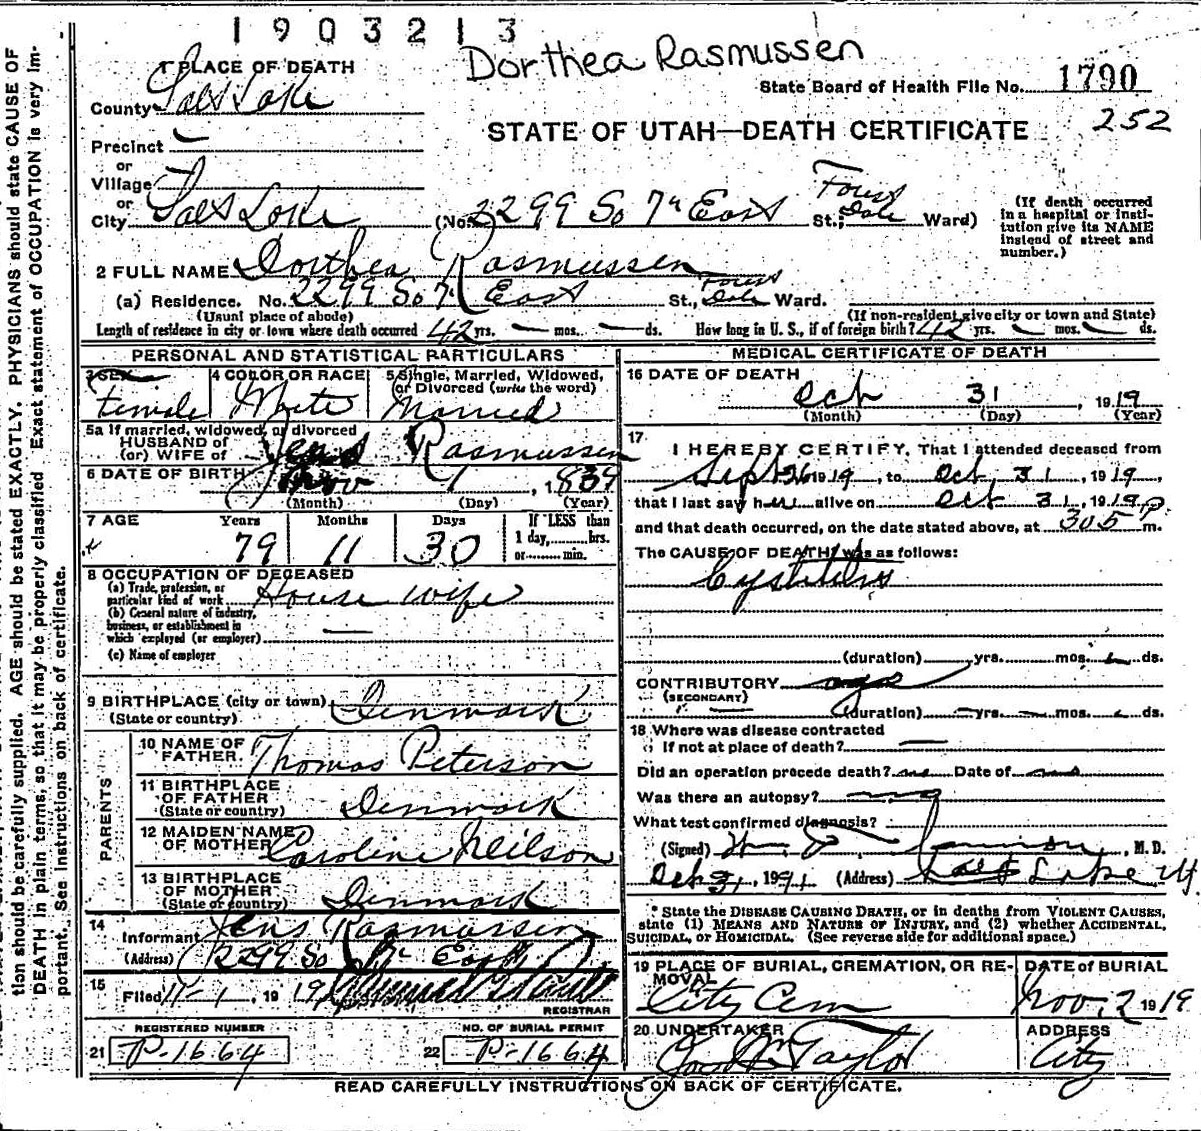 1903213
Dorthea Rasmussen
1 PLACE OF DEATH
State Board of Health File No. 1790
County Salt Lake
STATE OF UTAH—DEATH CERTIFICATE
252
Precinct —
or
Village
or
City Salt Lake (No. 2299 So 7th East St.; Forest Dale Ward)
(If death occurred in a hospital or institution give its NAME instead of street and number.)
2 FULL NAME Dorthea Rasmussen
(a) Residence. No. 2299 So 7 East St., Forest Dale Ward.
(Usual place of abode) (If non-resident give city or town and State)
Length of residence in city or town where death occurred 42 yrs. — mos. — ds. How long in U. S., if of foreign birth? 42 yrs. — mos. — ds.
PERSONAL AND STATISTICAL PARTICULARS
3 SEX 4 COLOR OR RACE 5 Single, Married, Widowed, or Divorced (write the word)
Female White Married
5a If married, widowed, or divorced
HUSBAND of
(or) WIFE of Jens Rasmussen
6 DATE OF BIRTH Nov 1, 1839
(Month) (Day) (Year)
7 AGE Years Months Days If LESS than
1 day, hrs.
or min.
79 11 30
8 OCCUPATION OF DECEASED
(a) Trade, profession, or
particular kind of work House wife
(b) General nature of industry,
business, or establishment in
which employed (or employer) —
(c) Name of employer
9 BIRTHPLACE (city or town) Denmark
(State or country)
PARENTS
10 NAME OF FATHER Thomas Peterson
11 BIRTHPLACE OF FATHER Denmark
(State or country)
12 MAIDEN NAME OF MOTHER Caroline Neilson
13 BIRTHPLACE OF MOTHER Denmark
(State or country)
14 Informant Jens Rasmussen
(Address) 2299 So 7th East
15 Filed 11-1, 1919
REGISTRAR
REGISTERED NUMBER NO. OF BURIAL PERMIT
21 P-1664 22 P-1664
MEDICAL CERTIFICATE OF DEATH
16 DATE OF DEATH
Oct 31, 1919
(Month) (Day) (Year)
17 I HEREBY CERTIFY, That I attended deceased from
Sept 26 1919, to Oct 31, 1919,
that I last say her alive on Oct 31, 1919
and that death occurred, on the date stated above, at 305 P m.
The CAUSE OF DEATH was as follows:
Cystitis
(duration) yrs. mos. ds.
CONTRIBUTORY age
(SECONDARY)
(duration) — yrs. — mos. — ds.
18 Where was disease contracted
if not at place of death? —
Did an operation precede death? no Date of
Was there an autopsy? no
What test confirmed diagnosis?
(Signed) Wm, M. D.
Oct 31, 19 (Address) Salt Lake
* State the DISEASE CAUSING DEATH, or in deaths from VIOLENT CAUSES,
state (1) MEANS AND NATURE OF INJURY, and (2) whether ACCIDENTAL,
SUICIDAL, or HOMICIDAL. (See reverse side for additional space.)
19 PLACE OF BURIAL, CREMATION, OR REMOVAL DATE of BURIAL
City Cem Nov. 2 1919
20 UNDERTAKER ADDRESS
Taylor City
READ CAREFULLY INSTRUCTIONS ON BACK OF CERTIFICATE.
tion should be carefully supplied. AGE should be stated EXACTLY. PHYSICIANS should state CAUSE OF
DEATH in plain terms, so that it may be properly classified. Exact statement of OCCUPATION is very im-
portant. See instructions on back of certificate.